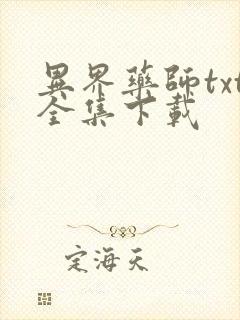 異界藥師txt
全集下載
定海天